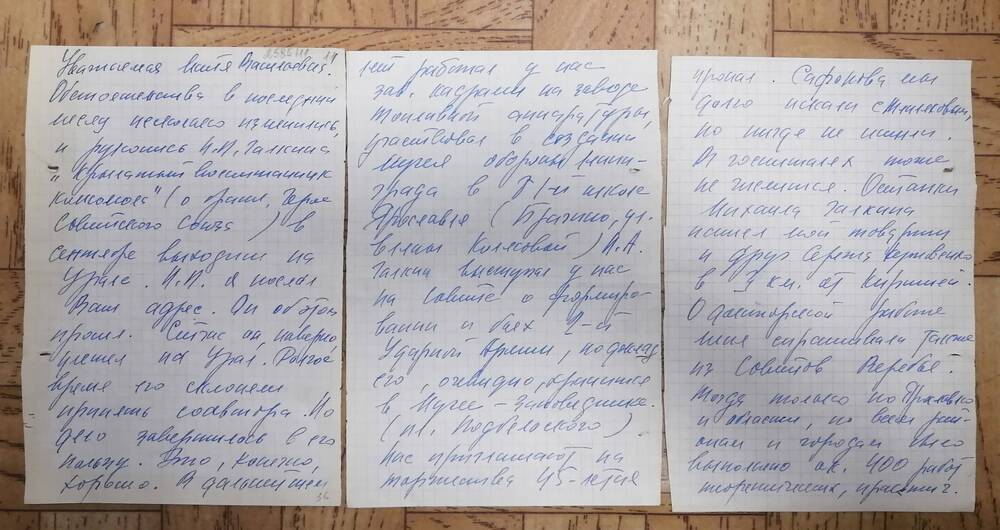 Уважаемая Майя Васильевна.
Обстоятельства в последний
месяц несколько изменились,
и рукопись П.П. Галкина
"Крылатый воспитанник
комсомола" (о брате, Герое
Советского Союза) в
сентябре выходит на
Урале. П.П. я послал
Ваш адрес. Он об этом
просил. Сейчас он, наверно,
уехал на Урал. Долгое
время его склоняли
принять соавтора. Но
дело завершилось в его
пользу. Это, конечно,
хорошо. В дальнейшем
лет работал у нас
зав. кадрами на заводе
топливной аппаратуры,
участвовал в создании
музея обороны Ленин-
града в 51-й школе
Ярославля (Брагино, ул.
Елены Колесовой) П.А.
Галкин выступал у нас
на Совете о формиро-
вании и боях 2-й
Ударной Армии, но доклад
его, очевидно, хранится
в Музее-заповеднике.
(пл. Подбельского)
Нас приглашают на
торжества 45-летия
пропал. Сафонова мы
долго искали с
но нигде не нашли.
В госпиталях тоже
не числится. Останки
Михаила Галкина
нашел мой товарищ
и друг Сережа
в 7 км. от Киришей.
О донорской работе
меня спрашивала
из Советов
Тогда только по
и области, по всем рай-
онам и городам было
выполнено ок. 400 работ
теоретических, практич.